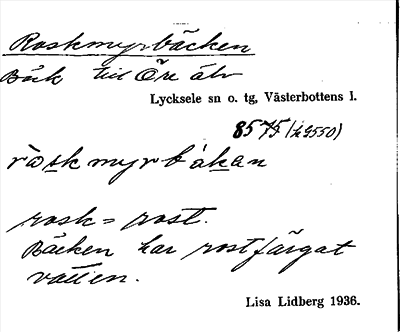 Roskmyrbäcken
Bäck till Öre älv
Lycksele sn o. tg, Västerbottens l.
8575 (i 9550)
ròskmyrbákan
rosk = rost.
Bäcken har rostfärgat
vatten.
Lisa Lidberg 1936.